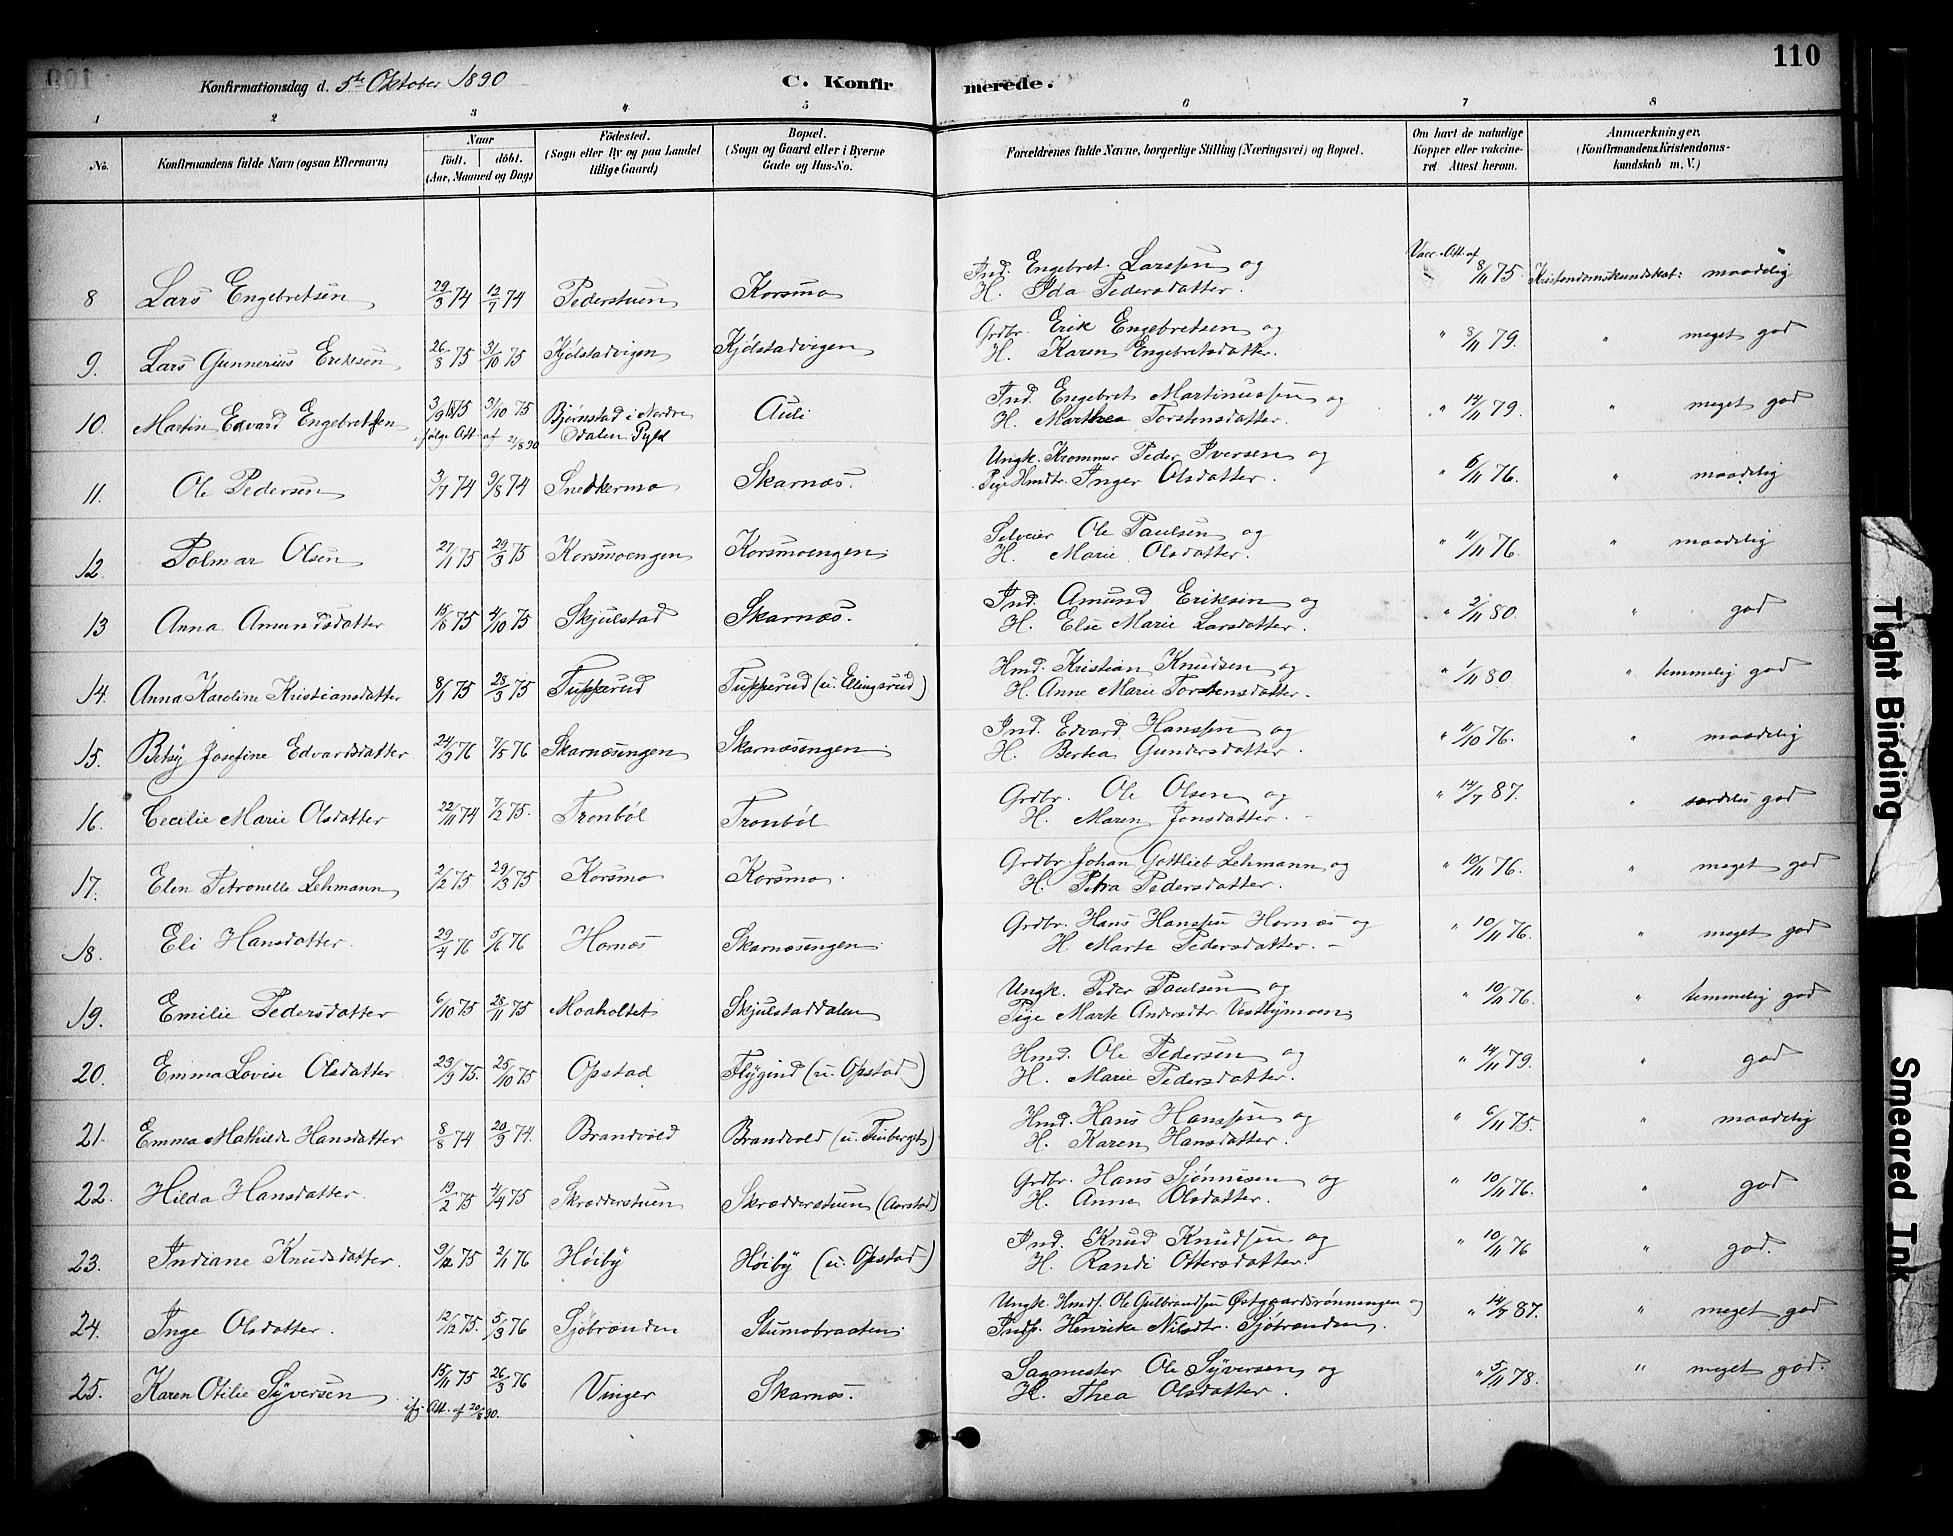 110
Konfirmationsdag d. 5te Oktober 1890
C. Konfirmerede.
1 2 3 4 5 6 7 8
No. Konfirmandens fulde Navn (ogsaa Efternavn) Naar født. døbt. (Aar, Maaned og Dag) Fødested. (Sogn eller By og paa Landet tillige Gaard) Bopæl. (Sogn og Gaard eller i Byerne Gade og Hus-No. Forældrenes fulde Navne, borgerlige Stilling (Næringsvei) og Bopæl. Om havt de naturlige Kopper eller vakcineret Attest herom. Anmærkninger, (Konfirmandens Kristendomskundskab m. V.)
8 Lars Engebretsen 29/3 74 12/7 74 Pederstuen Korsmo Ind. Engebret Larssen og H. Ida Pedersdatter. Vacc. Att. af 8/11 75. Kristendomskundskab: maadelig
9. Lars Gunnerius Eriksen 26/8 75 31/10 75 Kjölstadvigen Kjölstadvigen Grdbr. Erik Engebretsen og H. Karen Engebretsdatter. " 8/11 79. " meget god
10. Martin Edvard Engebretsen 3/9 75 3/10 75 ifølge Att. af 21/8 90 Bjørnstad i Nordre Odalen Auli Ind. Engebret Martinussen og H. Marthea Torstensdatter. " 14/11 79. " meget god
11. Ole Pedersen 3/7 74 9/8 74 Snedkermo Skarnæs. Ungk. Peder Iversen og Pige Hmdtr. Inger Olsdatter. " 6/11 76. " maadelig
12. Palmar Olsen 27/1 75 29/3 75 Korsmoengen Korsmoengen Selveier Ole Paulsen og H. Marie Olsdatter. " 11/11 76. " maadelig
13 Anna Amundsdatter 15/8 75 4/10 75 Skjulstad Skarnæs. Ind. Amund Eriksen og H. Else Marie Larsdatter. " 2/11 80. " god
14. Anna Karoline Kristiansdatter 8/1 75 28/3 75 Tupperud Tupperud (u. Ellingsrud) Hmd. Kristian Knudsen og H. Anne Marie Torstensdatter. " 1/11 80. " temmelig god
15. Betsy Josefine Edvardsdatter 24/3 76 7/5 76 Skarnæsengen Skarnæsengen. Ind. Edvard Hanssen og H. Bertea Gundersdatter. " 11/10 76. " maadelig
16. Cecilie Marie Olsdatter 22/11 74 7/2 75. Tronböl Tronböl Grdbr. Ole Olsen og H. Maren Jonsdatter. " 14/7 87. " særdeles god
17. Elen Petronelle Lehmann 2/2 75 29/3 75 Korsmo Korsmo. Grdbr. Johan Gottlieb Lehmann og H. Petra Pedersdatter. " 10/11 76. " meget god
18. Eli Hansdatter. 29/4 76 5/6 76 Hornæs Skarnæsengen. Grdbr. Hans Hanssen Hornæs og H. Marte Pedersdatter. " 10/11 76. " meget god
19. Emilie Pedersdatter 6/10 75 28/11 75 Moaholtet Skjulstaddalen Ungk. Peder Paulsen og Pige Marte Andersdtr. Vestbymoen. " 10/11 76. " temmelig god
20. Emma Lovise Olsdatter 23/9 75. 25/10 75 Opstad Flygind (u. Opstad) Hmd. Ole Pedersen og H. Marie Pedersdatter. " 14/11 79. " god
21. Emma Mathilde Hansdatter 8/8 74 20/9 74. Brandvold Brandvold Hmd. Hans Hanssen og H. Karen Hansdatter. " 6/11 75 " maadelig
22. Hilda Hansdatter. 19/2 75 4/4 75 Skrædderstuen Skrædderstuen (Aarstad) Grdbr. Hans Sjønnesen og H. Anne Olsdatter. " 10/11 76. " god
23. Indiane Knudsdatter. 9/12 75 2/1 76 Høiby Høiby (u. Opstad) Ind. Knud Knudsen og H. Randi Ottersdatter. " 10/11 76 " god.
24. Inge Olsdatter. 12/12 75. 5/3 76 Sjöbranden Stumobraaten. Ungk. Hmds. Ole Gulbrandsen Østgaardsrönningen og Inds. Henrike Nilsdtr. Sjöbranden. " 14/7 87. " meget god
25. Karen Otilie Syversen 15/11 75 26/3 76 ifg. Att. af 20/8 90. Vinger Skarnæs. Sagmester Ole Syversen og H. Thea Olsdatter. " 5/11 78. " meget god.
Tight Binding
Smeared Ink